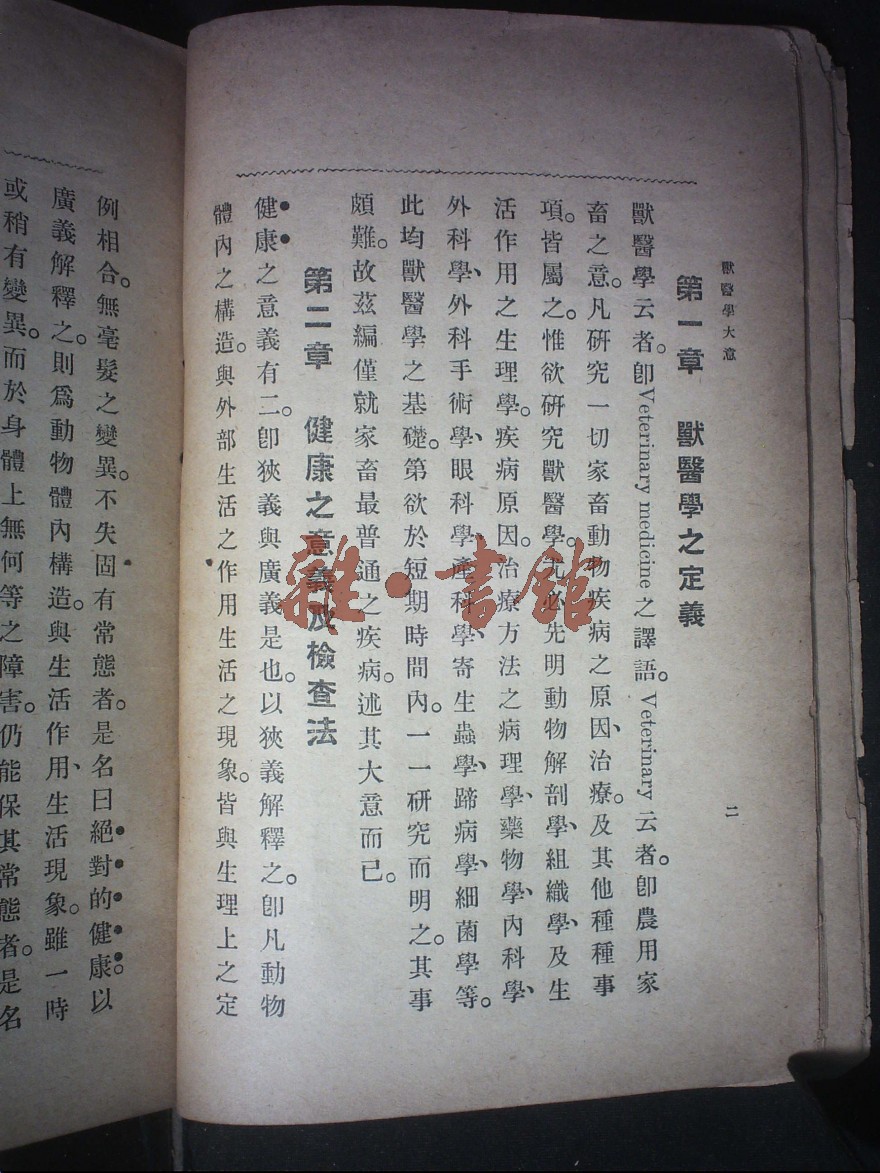 獸醫學大意
二
第一章 獸醫學之定義
獸醫學云者。卽Veterinary medicine之譯語。Veterinary云者。卽農用家
畜之意。凡硏究一切家畜動物疾病之原因、治療。及其他種種事
項。皆屬之。惟欲硏究獸醫學。尤必先明動物解剖學、組織學、及生
活作用之生理學。疾病原因。治療方法之病理學、藥物學、內科學、
外科學、外科手術學、眼科學、產科學、寄生蟲學、蹄病學、細菌學等。
此均獸醫學之基礎。第欲於短期時間內。一一硏究而明之。其事
頗難。故茲編僅就家畜最普通之疾病。述其大意而已。
第二章 健康之意義及檢查法
健康之意義有二。卽狹義與廣義是也。以狹義解釋之。卽凡動物
體內之構造。與外部生活之作用生活之現象。皆與生理上之定
例相合。無毫髮之變異。不失固有常態者。是名曰絕對的健康。以
廣義解釋之。則爲動物體內構造。與生活作用、生活現象。雖一時
或稍有變異。而於身體上無何等之障害。仍能保其常態者。是名
雜·書館